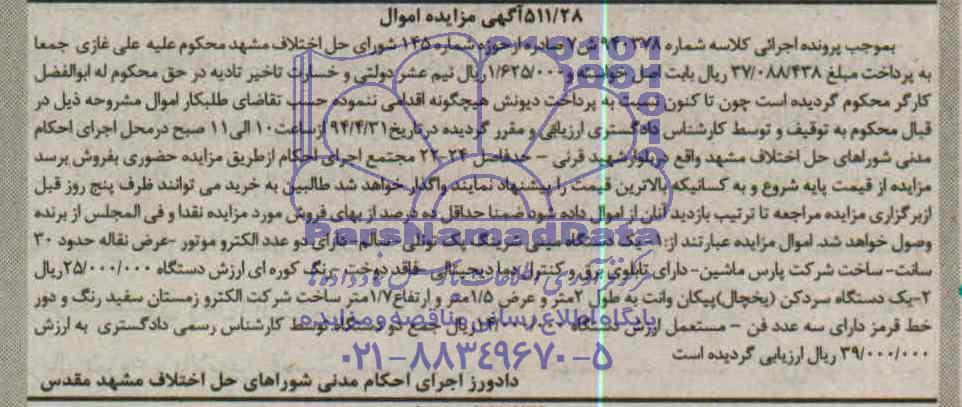 ۵۱۱/۲۸آگهی مزایده اموال
بموجب پرونده اجرائی کلاسه شماره ۹۴۰۳۷۸ ش ۷ صادره ازحوزه شماره ۱۴۵ شورای حل اختلاف مشهد محکوم علیه علی غازی جمعا
به پرداخت مبلغ ۳۷/۰۸۸/۴۳۸ ریال بابت اصل خواسته و ۱/۶۲۵/۰۰۰ریال نیم عشر دولتی و خسارت تاخیر تادیه در حق محکوم له ابوالفضل
کارگر محکوم گردیده است چون تا کنون نسبت به پرداخت دیونش هیچگونه اقدامی ننموده حسب تقاضای طلبکار اموال مشروحه ذیل در
قبال محکوم به توقیف و توسط کارشناس دادگستری ارزیابی و مقرر گردیده درتاریخ ۹۴/۴/۳۱ ازساعت ۱۰ الی ۱۱ صبح درمحل اجرای احکام
مدنی شوراهای حل اختلاف مشهد واقع دربلوارشهید قرنی – حدفاصل ۲۴-۲۲ مجتمع اجرای احکام ازطریق مزایده حضوری بفروش برسد
مزایده از قیمت پایه شروع و به کسانیکه بالاترین قیمت را پیشنهاد نمایند واگذار خواهد شد طالبین به خرید می توانند ظرف پنج روز قبل
ازبرگزاری مزایده مراجعه تا ترتیب بازدید آنان از اموال داده شود ضمنا حداقل ده درصد از بهای فروش مورد مزایده نقدا و فی المجلس از برنده
وصول خواهد شد. اموال مزایده عبارتند از: ۱-یک دستگاه مینی شرینگ پک تونلی -سالم-دارای دو عدد الکترو موتور -عرض نقاله حدود ۳۰
سانت- ساخت شرکت پارس ماشین- دارای تابلوی برق و کنترل دما دیجیتالی -فاقد دوخت -رنگ کوره ای ارزش دستگاه ۲۵/۰۰۰/۰۰۰ریال
۲-یک دستگاه سردکن (یخچال)پیکان وانت به طول ۲متر و عرض ۱/۵متر و ارتفاع۱/۷متر ساخت شرکت الکترو زمستان سفید رنگ و دور
خط قرمز دارای سه عدد فن – مستعمل ارزش دستگاه ریال جمع دو دستگاه توسط کارشناس رسمی دادگستری به ارزش
۳۹/۰۰۰/۰۰۰ ریال ارزیابی گردیده است
دادورز اجرای احکام مدنی شوراهای حل اختلاف مشهد مقدس
ParsNamadData
پایگاه اطلاع رسانی مناقصه و مزایده
۰۲۱-۸۸۳۴۹۶۷۰-۵